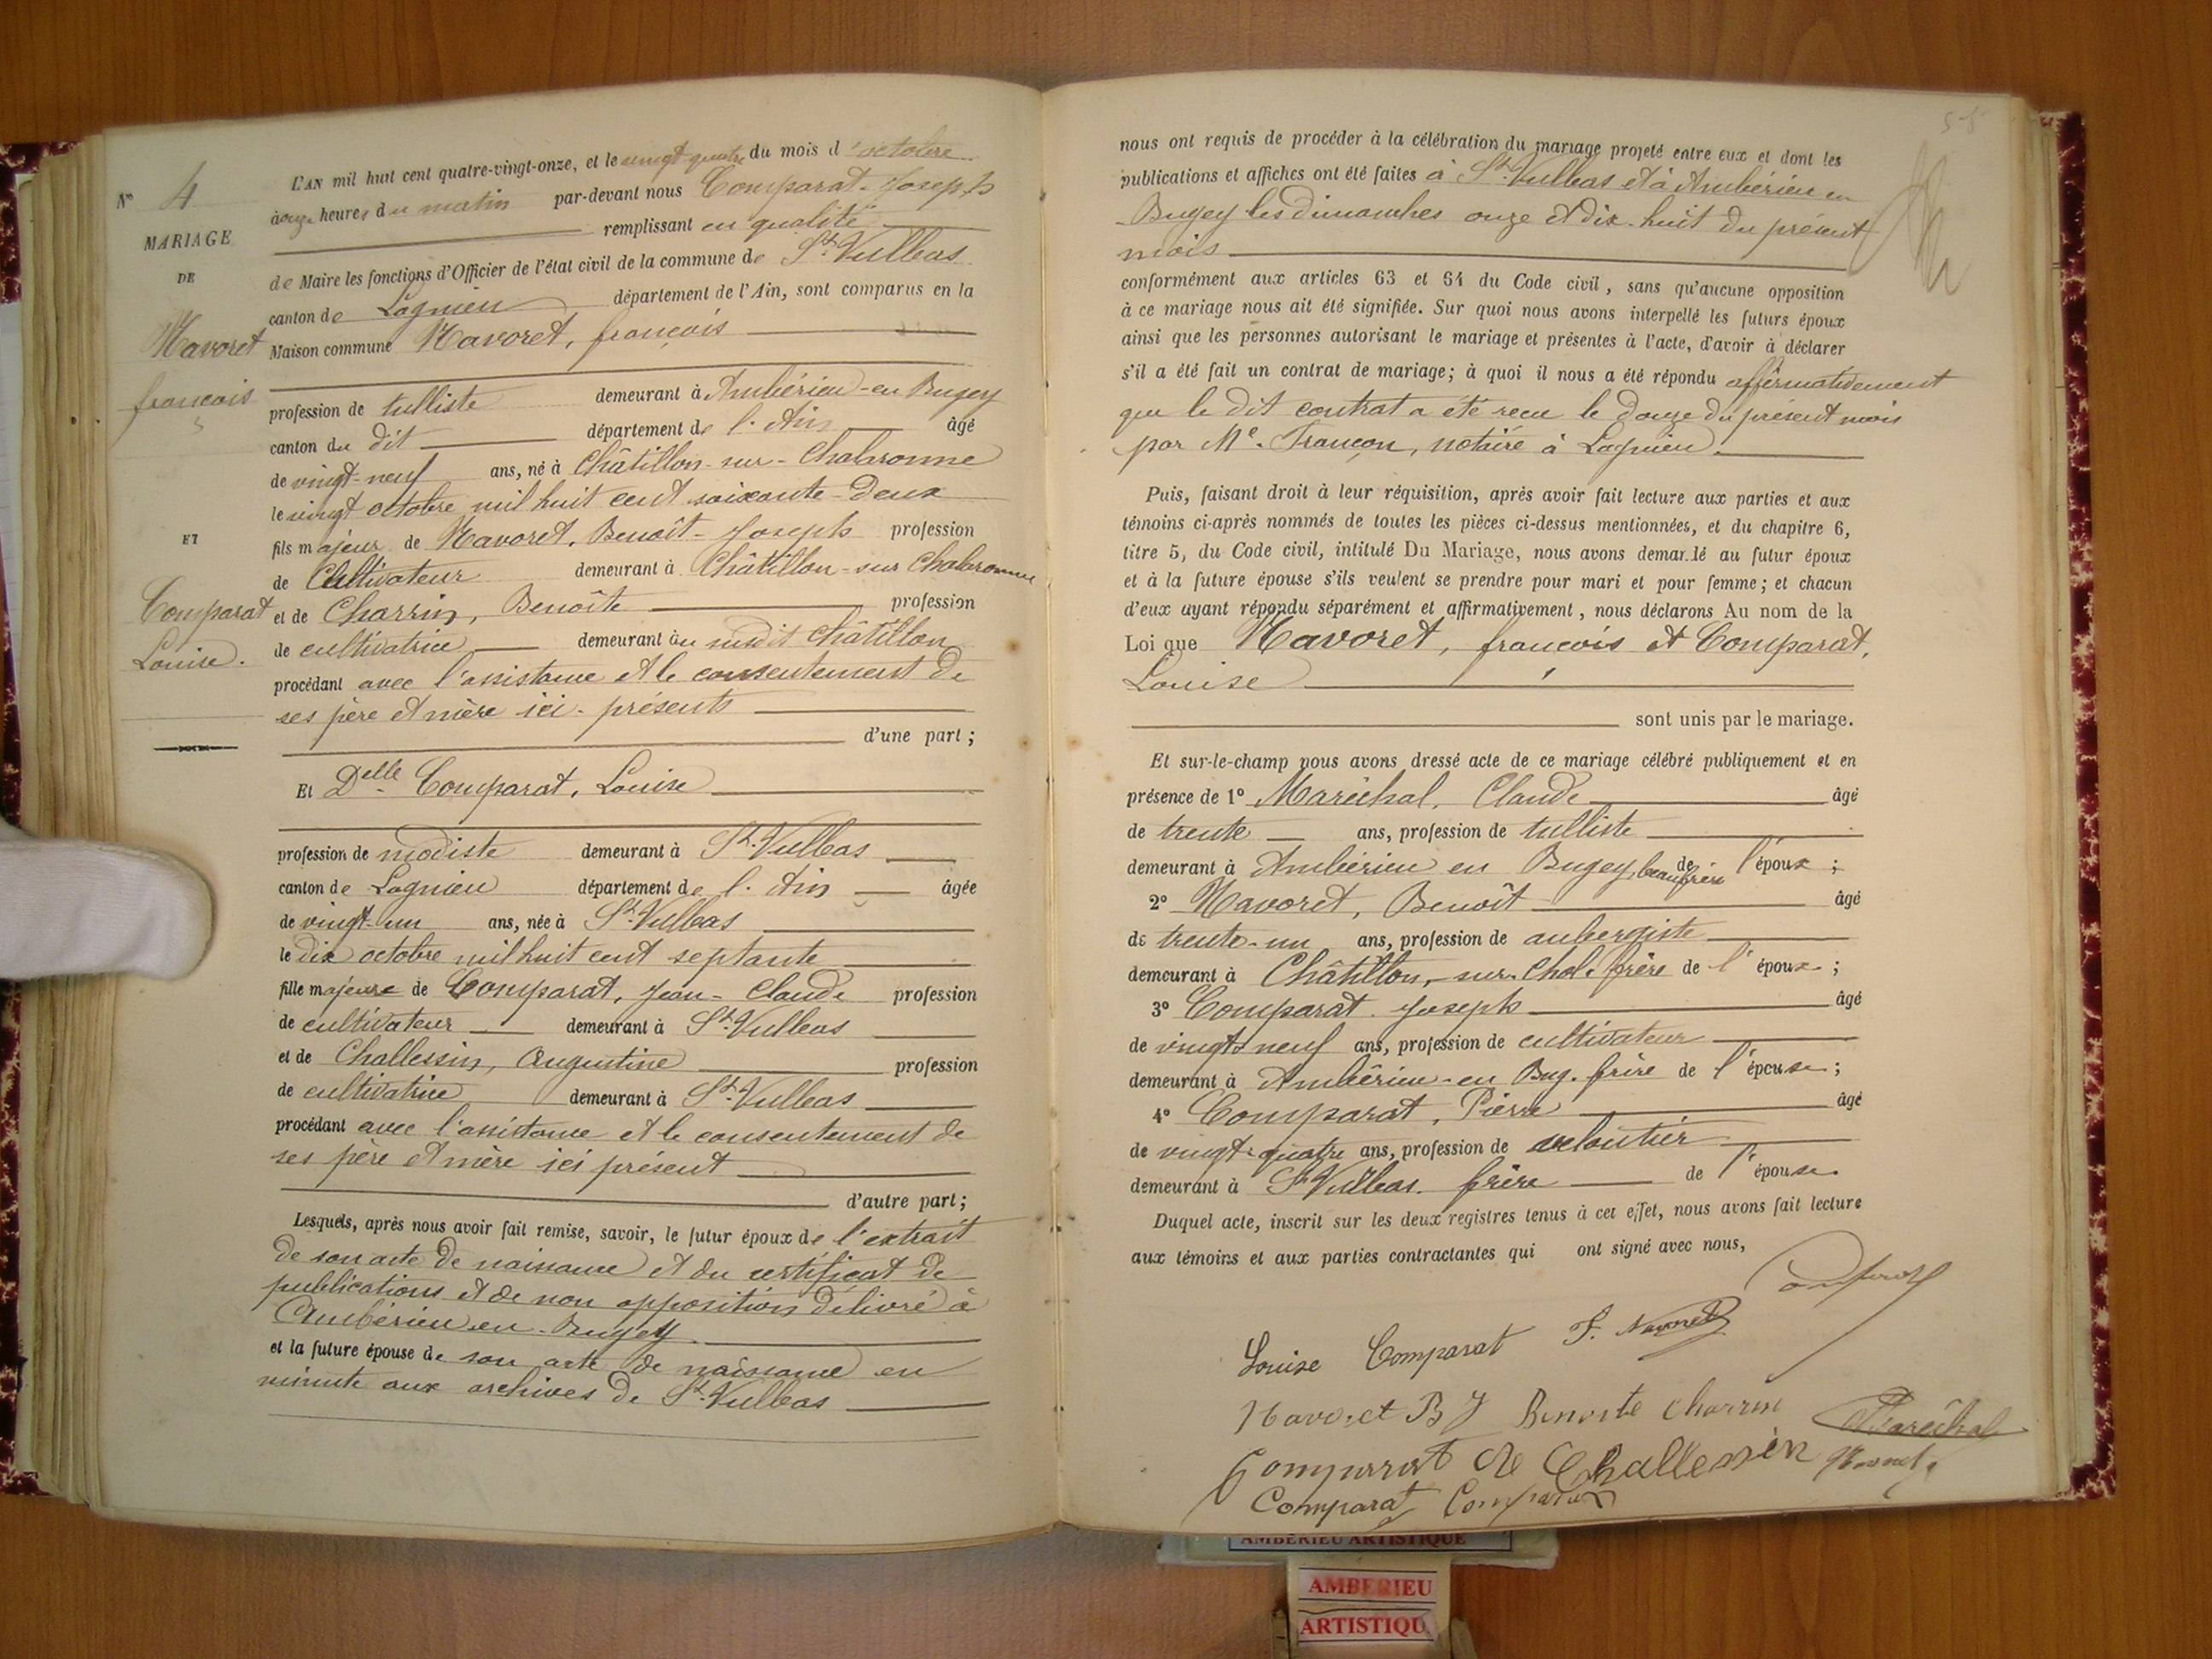 N° 4
MARIAGE
DE
Navoret
françois
ET
Comparat
Louise.
L'AN mil huit cent quatre-vingt-onze, et le vingt-quatre du mois d'octobre
à onze heures du matin par-devant nous Comparat Joseph
remplissant en qualité
de Maire les fonctions d'Officier de l'état civil de la commune de St-Vulbas
canton de Lagnieu département de l'Ain, sont comparus en la
Maison commune Navoret, françois
profession de tulliste demeurant à Ambérieu-en Bugey
canton du dit département de l'Ain âgé
de vingt-neuf ans, né à Châtillon-sur-Chalaronne
le vingt octobre mil huit cent soixante-deux
fils majeur de Navoret, Benoît-Joseph profession
de Cultivateur demeurant à Châtillon-sur Chalaronne
et de Charrin, Benoîte profession
de cultivatrice demeurant au susdit Châtillon
procédant avec l'assistance et le consentement de
ses père et mère ici-présents
d'une part;
Et Delle Comparat, Louise
profession de modiste demeurant à St-Vulbas
canton de Lagnieu département de l'Ain âgée
de vingt-un ans, née à St-Vulbas
le dix octobre mil huit cent septante
fille majeure de Comparat, Jean-Claude profession
de cultivateur demeurant à St-Vulbas
et de Challessin, Augustine profession
de cultivatrice demeurant à St-Vulbas
procédant avec l'assistance et le consentement de
ses père et mère ici présent
d'autre part;
Lesquels, après nous avoir fait remise, savoir, le futur époux de l'extrait
de son acte de naissance et du certificat de
publications et de non opposition délivré à
Ambérieu-en-Bugey
et la future épouse de son acte de naissance en
minute aux archives de St-Vulbas
nous ont requis de procéder à la célébration du mariage projeté entre eux et dont les
publications et affiches ont été faites à St-Vulbas et à Ambérieu en
Bugey les dimanches onze et dix-huit du présent
mois
conformément aux articles 63 et 64 du Code civil, sans qu'aucune opposition
à ce mariage nous ait été signifiée. Sur quoi nous avons interpellé les futurs époux
ainsi que les personnes autorisant le mariage et présentes à l'acte, d'avoir à déclarer
s'il a été fait un contrat de mariage; à quoi il nous a été répondu affirmativement
que le dit contrat a été reçu le douze du présent mois
par Me. Françon, notaire à Lagnieu.
Puis, faisant droit à leur réquisition, après avoir fait lecture aux parties et aux
témoins ci-après nommés de toutes les pièces ci-dessus mentionnées, et du chapitre 6,
titre 5, du Code civil, intitulé Du Mariage, nous avons demandé au futur époux
et à la future épouse s'ils veulent se prendre pour mari et pour femme; et chacun
d'eux ayant répondu séparément et affirmativement, nous déclarons Au nom de la
Loi que Navoret, françois et Comparat,
Louise
sont unis par le mariage.
Et sur-le-champ nous avons dressé acte de ce mariage célébré publiquement et en
présence de 1° Maréchal, Claude âgé
de trente ans, profession de tulliste
demeurant à Ambérieu en Bugey, beau frère de l'époux;
2° Navoret, Benoît âgé
de trente-un ans, profession de aubergiste
demeurant à Châtillon-sur-Chal. frère de l'époux;
3° Comparat Joseph âgé
de vingt-neuf ans, profession de cultivateur
demeurant à Ambérieu-en Bug. frère de l'épouse;
4° Comparat, Pierre âgé
de vingt-quatre ans, profession de veloutier
demeurant à St Vulbas. frère de l'épouse.
Duquel acte, inscrit sur les deux registres tenus à cet effet, nous avons fait lecture
aux témoins et aux parties contractantes qui ont signé avec nous,
Louise Comparat F. Navoret
Navoret B J Benoite Charrin Maréchal
Comparat Challessin Navoret
Comparat Comparat
AMBERIEU ARTISTIQUE
AMBERIEU
ARTISTIQU